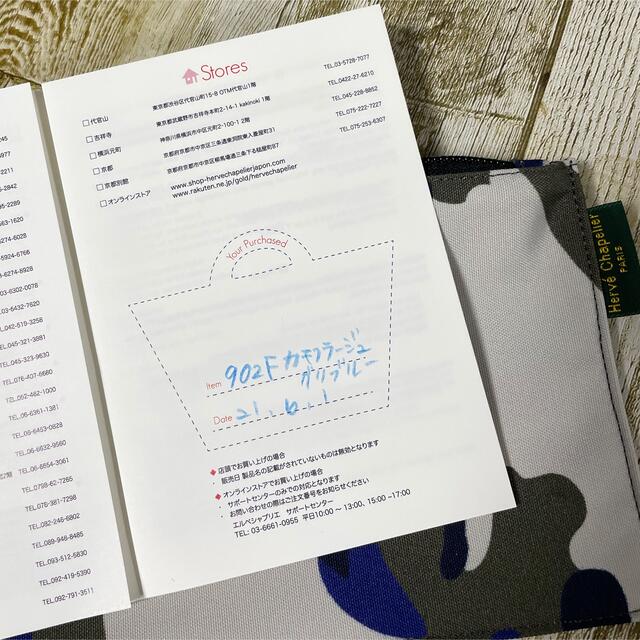 Stores
□ 代官山 東京都渋谷区代官山町15-8 OTM代官山1階 TEL.03-5728-7077
□ 吉祥寺 東京都武蔵野市吉祥寺本町2-14-1 kakinoki 1階 TEL.0422-27-6210
□ 横浜元町 神奈川県横浜市中区元町2-100-1 2階 TEL.045-228-8852
□ 京都 京都府京都市中京区三条通東洞院東入菱屋町31 TEL.075-222-7227
□ 京都別館 京都府京都市中京区柳馬場通三条下る槌屋町87 TEL.075-253-6307
□ オンラインストア www.shop-hervechapelierjapon.com
www.rakuten.ne.jp/gold/hervechapelier
Your Purchased
Item 902F カモフラージュ
グリブルー
Date 21.6.1
◆ 店頭でお買い上げの場合
・ 販売日 製品名の記載がされていないものは無効となります
◆ オンラインストアでお買い上げの場合
・ サポートセンターのみでの対応となります
・ お問い合わせの際はご注文番号をお知らせください
エルベシャプリエ サポートセンター
TEL: 03-6661-0955 平日10:00 ~ 13:00, 15:00 ~17:00
Hervé Chapelier
PARIS
TEL.042-519-3258
TEL.045-321-3881
TEL.045-323-9630
TEL.076-407-6680
TEL.052-462-1000
TEL.06-6361-1381
TEL.06-6453-0628
TEL.06-6632-9560
TEL.06-6854-3061
TEL.0798-62-7265
TEL.076-381-7298
TEL.082-246-6802
TEL.089-948-8485
TEL.093-512-5830
TEL.092-419-5390
TEL.092-791-3511